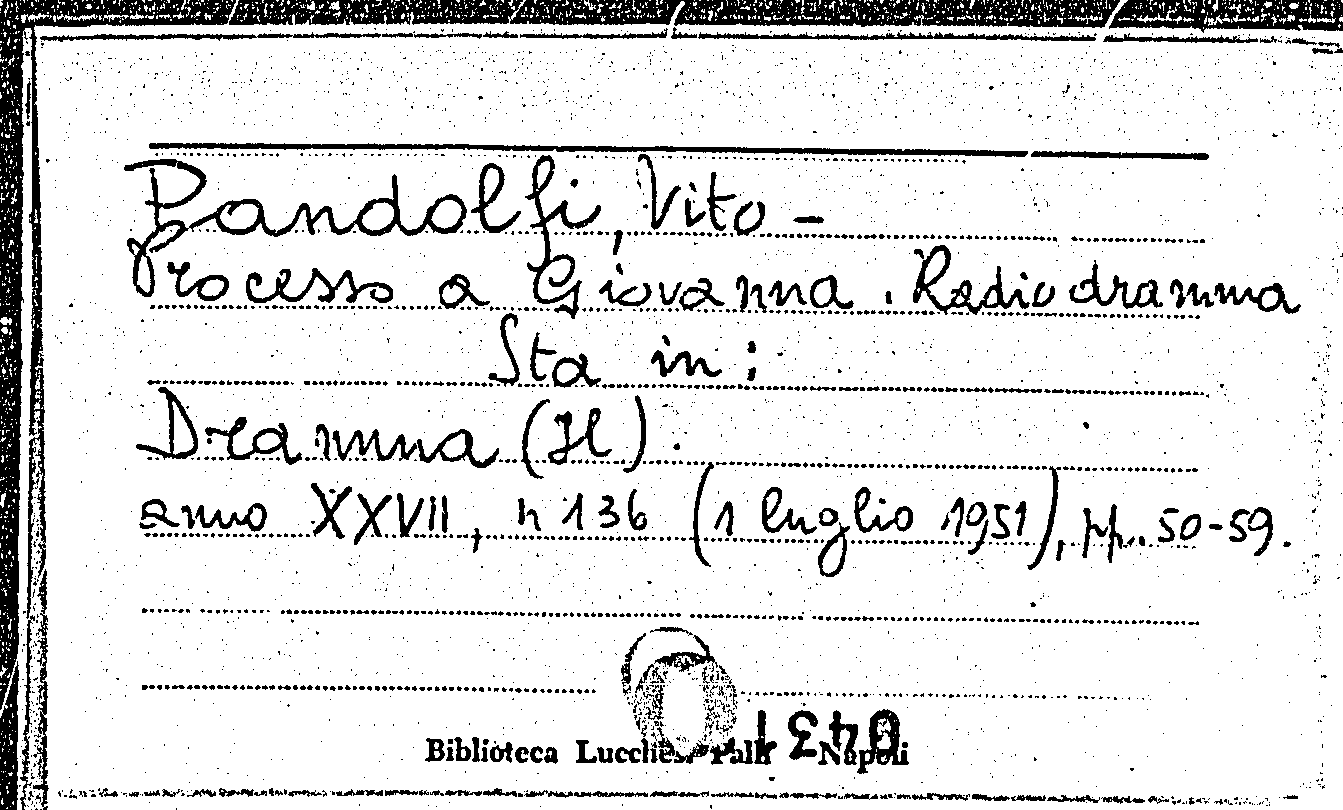 Pandolfi, Vito -
Processo a Giovanna. Radiodramma
Sta in:
Dramma (Il).
anno XXVII, n 136 (1 luglio 1951), pp. 50-59.
Biblioteca Lucchesi Palli - Napoli